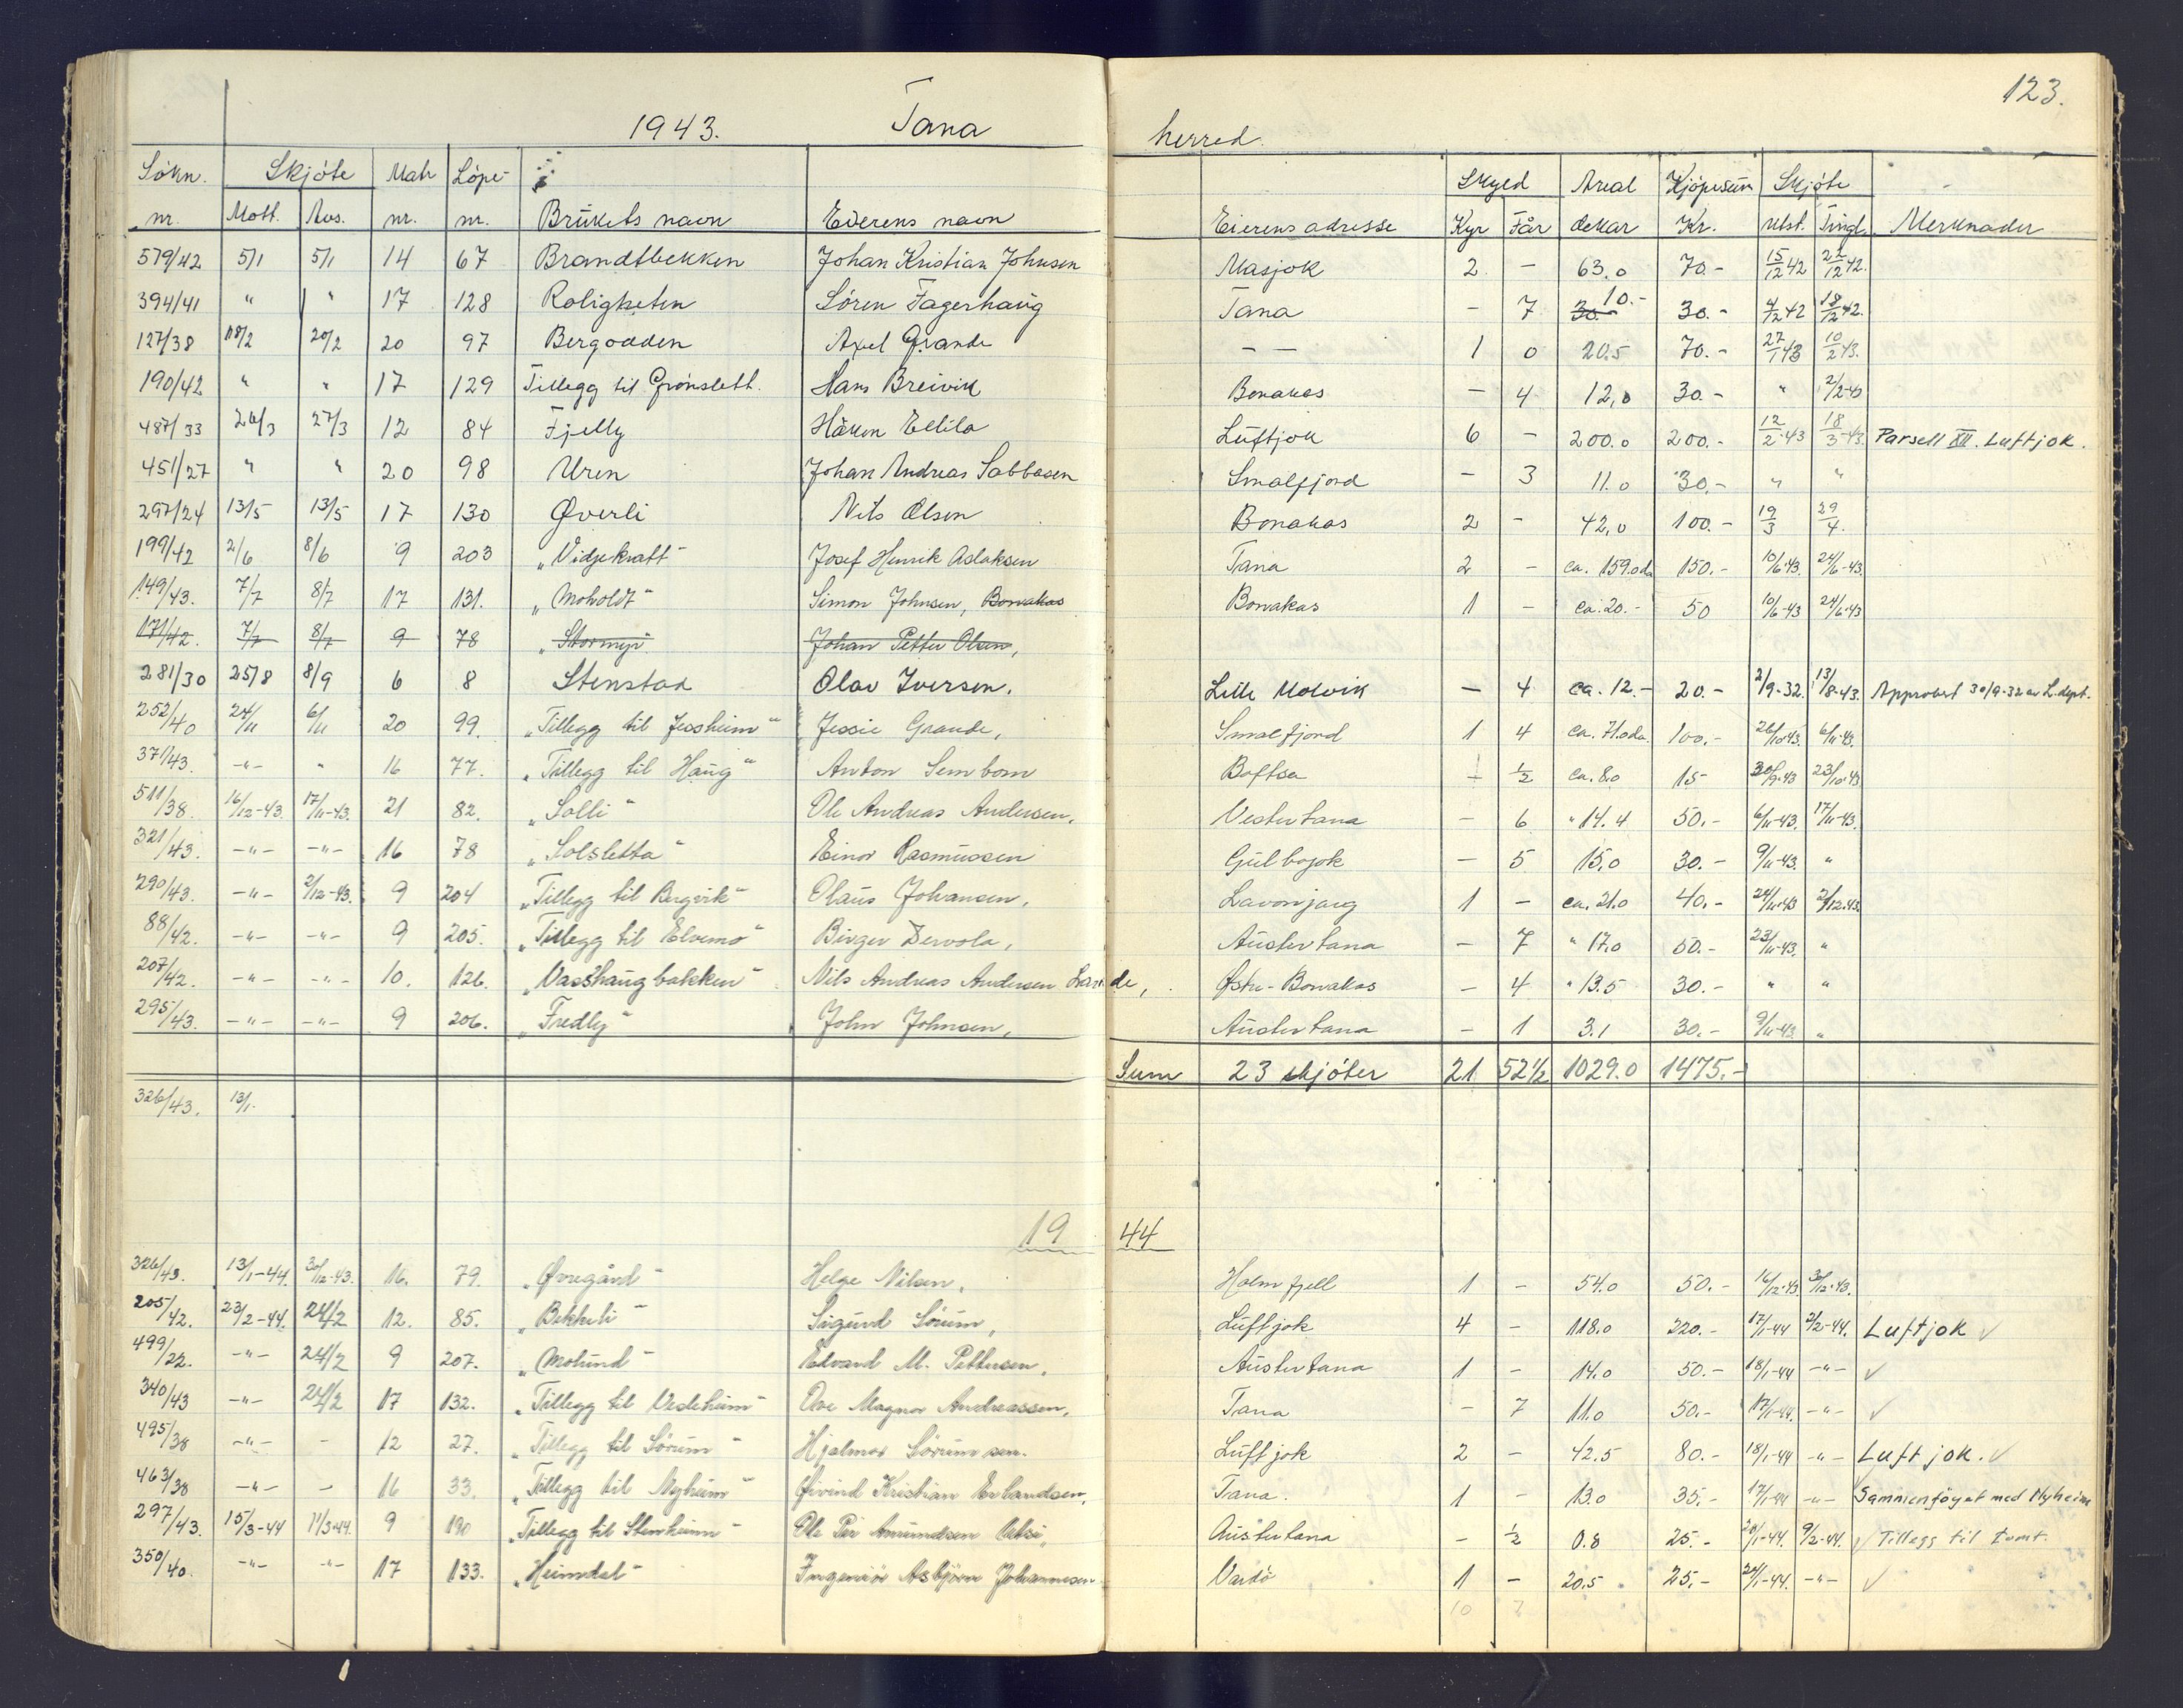 123.
1943. Tana herred.
Søkn. Skjøte Matr Løpe- Skyld Areal Kjøpesum Skjøte
nr. Mott. Avs. nr. nr. Brukets navn Eierens navn Eierens adresse Kyr Får dekar Kr. Utst. Tingl. Merknader
579/42 5/1 5/1 14 67 Brandtbekken Johan Kristian Johnsen Masjok 2 - 63.0 70.- 15/12 42 22/12 42.
394/41 " " 17 128 Roligheten Søren Fagerhaug Tana - 7 30.- 10.- 30.- 4/12 42 18/12 42.
127/38 18/2 20/2 20 97 Bergodden Axel Grande - - 1 0 20.5 70.- 27/1 43 10/2 43.
190/42 " " 17 129 Tillegg til Grønslett. Hans Breivik Bonakas - 4 12,0 30.- " 2/2-43
487/33 26/3 27/3 12 84 Fjelly Håkon Ellila Luftjok 6 - 200.0 200.- 12/2-43 18/3-43. Parsell XII. Luftjok.
451/27 " " 20 98 Uren Johan Andreas Sabbasen Smalfjord - 3 11.0 30.- " "
297/24 13/5 13/5 17 130 Øverli Nils Olsen Bonakas 2 - 42,0 100.- 19/3 29/4.
199/42 2/6 8/6 9 203 „Vidjekratt" Josef Henrik Aslaksen Tana 2 - ca. 159.0da 150.- 10/6-43. 24/6-43.
149/43. 7/7 8/7 17 131. „Moholdt" Simon Johnsen, Bonakas Bonakas 1 - ca. 20.- 50 10/6-43 24/6-43
171/42. 7/7 8/7 9 78 „Stormyr" Johan Petter Olsen,
281/30 25/8 8/9 6 8 Stenstad Olav Iversen. Lille Molvik - 4 ca. 12.- 20.- 2/9-32. 13/8-43. Approbert 30/9-32 av L.dept.
252/40 24/11 6/11 20 99. „Tillegg til Jessheim" Jessie Grande, Smalfjord 1 4 ca. 71.0da. 100.- 26/10-43. 6/11-43.
371/43. -"- " 16 77. „Tillegg til Haug" Anton Sembom Boftsa - 1/2 ca. 8.0 15- 30/9-43 23/10-43
511/38. 16/12-43. 17/11-43. 21 82. „Solli" Ole Andreas Andersen. Vestertana - 6 " 14.4 50.- 6/11-43. 17/11-43.
321/43. -"- -"- 16 78 „Solsletta" Einar Rasmussen Gulbojok - 5 15,0 30.- 9/11-43. "
290/43. -"- 2/12-43. 9 204 „Tillegg til Bergvik" Olaus Johansen, Lavonjarg 1 - ca. 21.0 40.- 24/11-43 2/12-43.
88/42. -"- -"- 9 205. „Tillegg til Elvemo" Birger Dervola, Austertana - 7 " 17.0 50.- 23/11-43. "
207/42. -"- -"- 10. 126. „Vasshaugbakken" Nils Andreas Andersen Lande, Østre-Bonakas - 4 " 13.5 30.- " "
295/43. -"- -"- 9 206. „Fredly" John Johnsen, Austertana - 1 3.1 30.- 9/11-43. "
Sum 23 skjøter 21 52 1/2 1029.0 1475.-
326/43. 13/1.
1944
326/43. 13/1-44. 30/12-43. 16. 79. „Øvregård" Helge Nilsen, Holmfjell 1 - 54.0 50.- 16/12-43. 30/12-43.
205/42. 23/2-44. 24/2 12. 85. „Bekkeli" Sigurd Sørum, Luftjok 4 - 118.0 220.- 17/1-44 2/2-44. Luftjok ✓
499/22. -"- 24/2 9 207. „Molund" Edvard M. Pettersen, Austertana 1 - 14.0 50.- 18/1-44 -"- ✓
340/43 -"- 24/2 17 132. „Tillegg til Vesleheim" Ove Magnor Andreassen, Tana - 7 11.0 50.- 17/1-44. -"- ✓
495/38 -"- - 12 27. „Tillegg til Sørum" Hjalmar Sørum sen. Luftjok 2 - 42.5 80.- 18/1-44 -"- Luftjok. ✓
463/38 -"- - 16 33. „Tillegg til Nyheim" Øivind Kristian Erlandsen, Tana. 1 - 13.0 35.- 17/1-44 -"- Sammenføyet med Nyheim
297/43. 15/3-44 11/3-44. 9 190 „Tillegg til Stenheim" Ole Per Amundsen Austertana - 1/2 0.8 25.- 20/1-44. 9/2-44. ✓ Tillegg til tomt.
350/40. -"- -"- 17 133. „Heimdal" Ingeniør Asbjørn Johannesen Vardø 1 - 20.5 25.- 24/1-44. -"- ✓
10 7